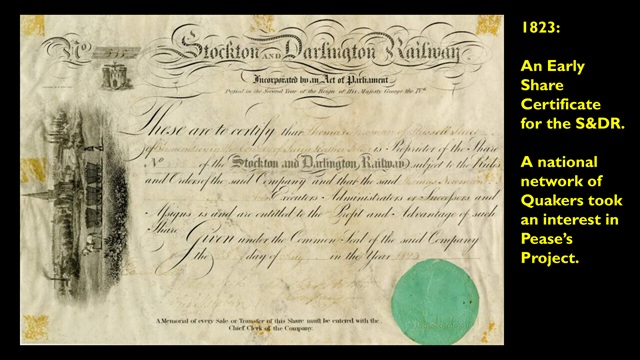 No.
Stockton AND Darlington Railway.
Incorporated by an Act of Parliament
Passed in the Second Year of the Reign of His Majesty George the IVth
These are to certify that
of is Proprietor of the Share
No of the Stockton and Darlington Railway, subject to the Rules
and Orders of the said Company and that the said
Executors Administrators or Successors and
Assigns is and are entitled to the Profit and Advantage of such
Share
Given under the Common Seal of the said Company
the day of in the Year
A Memorial of every Sale or Transfer of this Share must be entered with the
Chief Clerk of the Company.
1823:
An Early
Share
Certificate
for the S&DR.
A national
network of
Quakers took
an interest in
Pease's
Project.